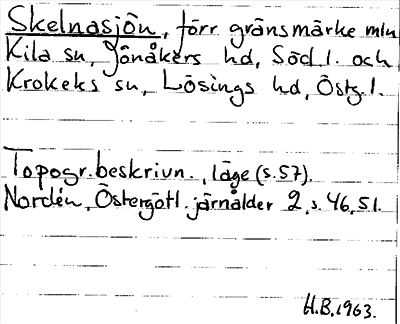 Skelnasjön, förr gränsmärke mln
Kila sn, Jönåkers hd, Söd.l. och
Krokeks sn, Lösings hd, Östg.l.
Topogr.beskrivn., läge (s.57).
Nordén, Östergötl. järnålder 2, s.46,51.
H.B.1963.